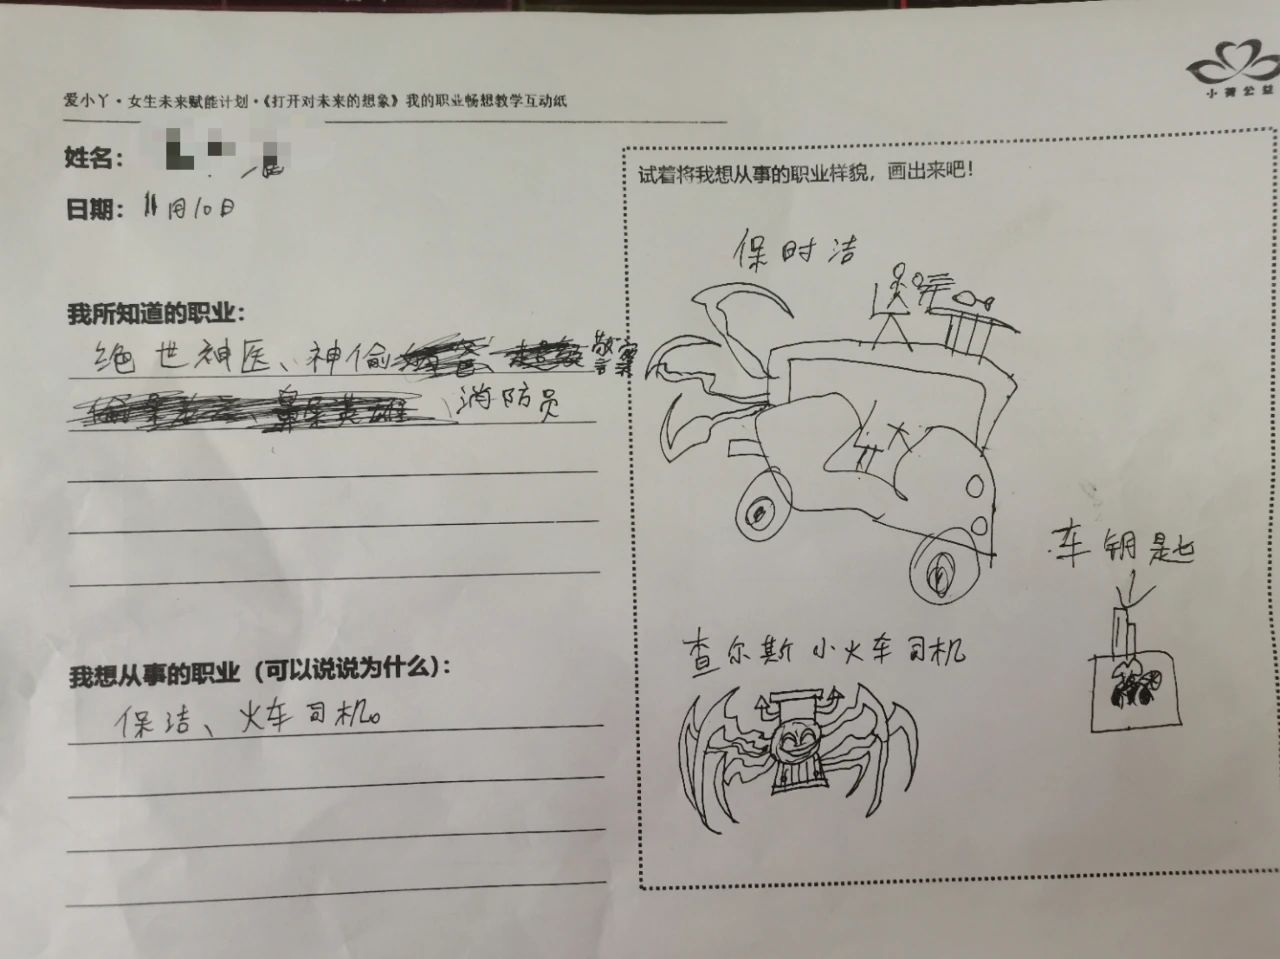 爱小丫·女生未来赋能计划·《打开对未来的想象》我的职业畅想教学互动纸
小菁公益
姓名：
日期：11月10日
我所知道的职业：
绝世神医、神偷、警察
、消防员
我想从事的职业（可以说说为什么）：
保洁、火车司机。
试着将我想从事的职业样貌，画出来吧！
保时洁
车钥匙
查尔斯小火车司机